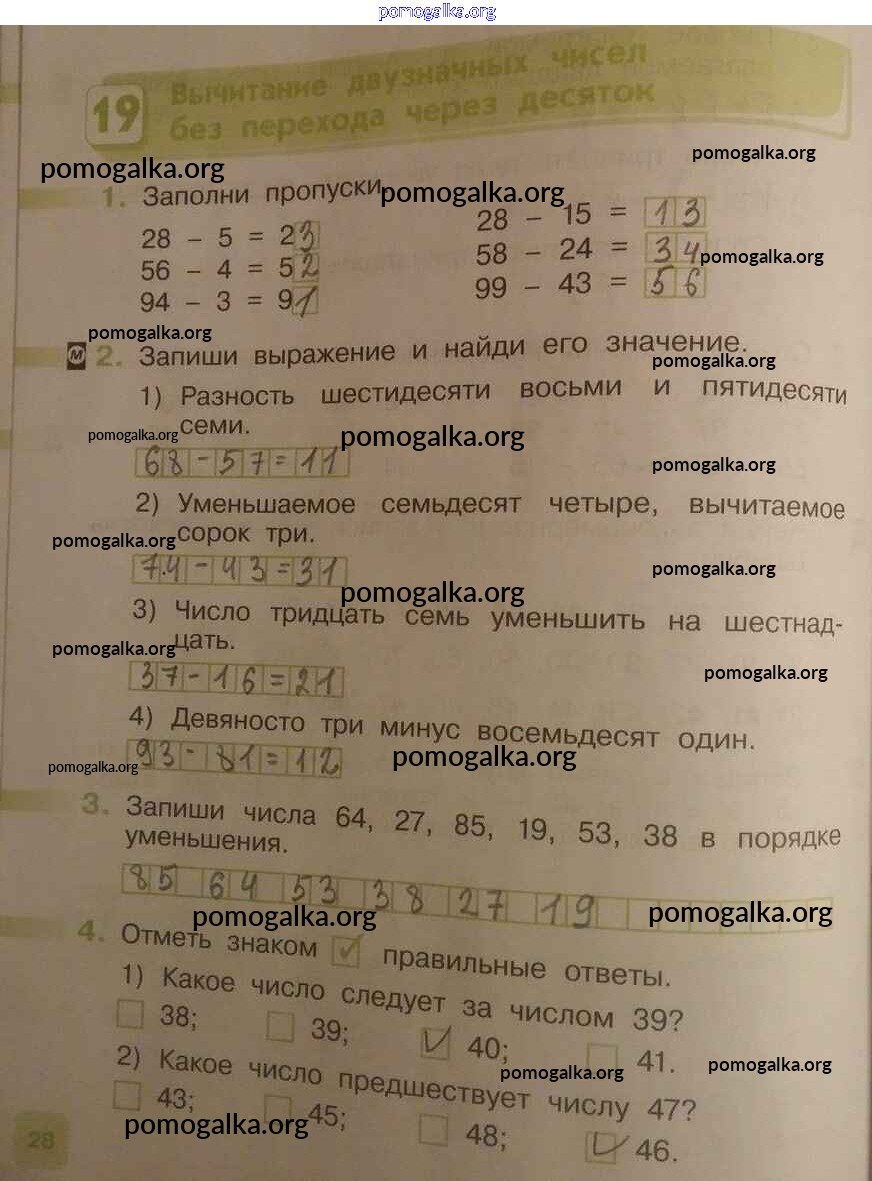 pomogalka.org
19 Вычитание двузначных чисел
без перехода через десяток
pomogalka.org
pomogalka.org
1. Заполни пропуски
pomogalka.org
28 – 5 = 23
28 – 15 = 13
56 – 4 = 52
58 – 24 = 34
pomogalka.org
94 – 3 = 91
99 – 43 = 56
pomogalka.org
М 2. Запиши выражение и найди его значение.
pomogalka.org
1) Разность шестидесяти восьми и пятидесяти
pomogalka.org семи.
pomogalka.org
68-57=11
pomogalka.org
2) Уменьшаемое семьдесят четыре, вычитаемое
pomogalka.org сорок три.
74-43=31
pomogalka.org
pomogalka.org
3) Число тридцать семь уменьшить на шестнад-
pomogalka.org цать.
37-16=21
pomogalka.org
4) Девяносто три минус восемьдесят один.
93-81=12
pomogalka.org
pomogalka.org
3. Запиши числа 64, 27, 85, 19, 53, 38 в порядке
уменьшения.
85 64 53 38 27 19
pomogalka.org
pomogalka.org
4. Отметь знаком ✓ правильные ответы.
1) Какое число следует за числом 39?
38; 39; ✓ 40; 41.
pomogalka.org
pomogalka.org
2) Какое число предшествует числу 47?
43; 45; 48; ✓ 46.
pomogalka.org
28